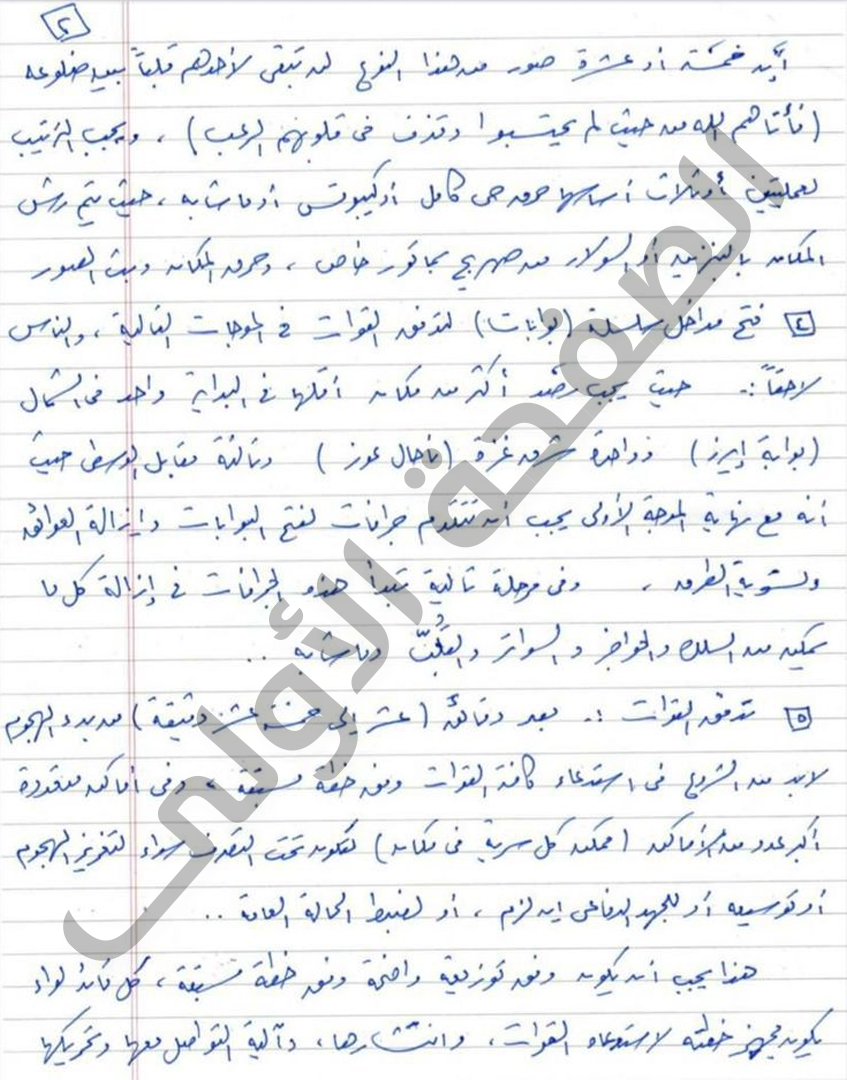 ٢
أيّة خمسة أو عشرة صور من هذا النوع لن تبقي لأحدهم قلباً بين ضلوعه
(فأتاهم الله من حيث لم يحتسبوا وقذف في قلوبهم الرعب) ، ويجب الترتيب
لعمليتين أو ثلاث أساسها حرق حي كامل أو كيبوتس أو ما شابه ، حيث يتم رش
المكان بالبنزين أو السولار من صهريج بماتور خاص ، وحرق المكان وبث الصور
٤ فتح مداخل سلسلة (بوابات) لتدفق القوات في الموجات التالية ، والناس
لاحقاً :- حيث يجب رصد أكثر من مكان أقلها في البداية واحد في الشمال
(بوابة إيرز) وواحدة شرق غزة (ناحال عوز) وثالثة مقابل الوسطى حيث
أنه مع نهاية الموجة الأولى يجب أن تتقدم جرافات لفتح البوابات وإزالة العوائق
وتسوية الطرق ، وفي مرحلة تالية تبدأ هذه الجرافات في إزالة كل ما
يمكن من السلك والحواجز والسواتر والقُبب وما شابه ..
٥ تدفق القوات :- بعد دقائق (عشر إلى خمسة عشر دقيقة) من بدء الهجوم
لابد من الشروع في استدعاء كافة القوات وفق خطة مسبقة ، وفي أماكن متعددة
أكبر عدد من الأماكن (ممكن كل سرية في مكان) لتكون تحت التصرف سواء لتعزيز الهجوم
أو توسيعه أو للجهد الدفاعي إن لزم ، أو لضبط الحالة العامة ..
هذا يجب أن يكون وفق توزيعة واضحة وفق خطة مسبقة ، كل قائد لواء
يكون مجهز خطته لاستدعاء القوات ، وانتشارها ، وآلية التواصل معها وتحريكها
الصفحة الأولى